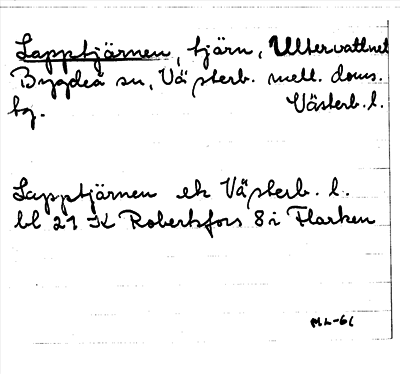 Lapptjärnen, tjärn, Ultervattnet
Bygdeå sn, Västerb. mell. doms.
bg. Västerb. l.
Lapptjärnen ek Västerb. l.
bl 21 K Robertsfors 8 i Flarken
ML-61